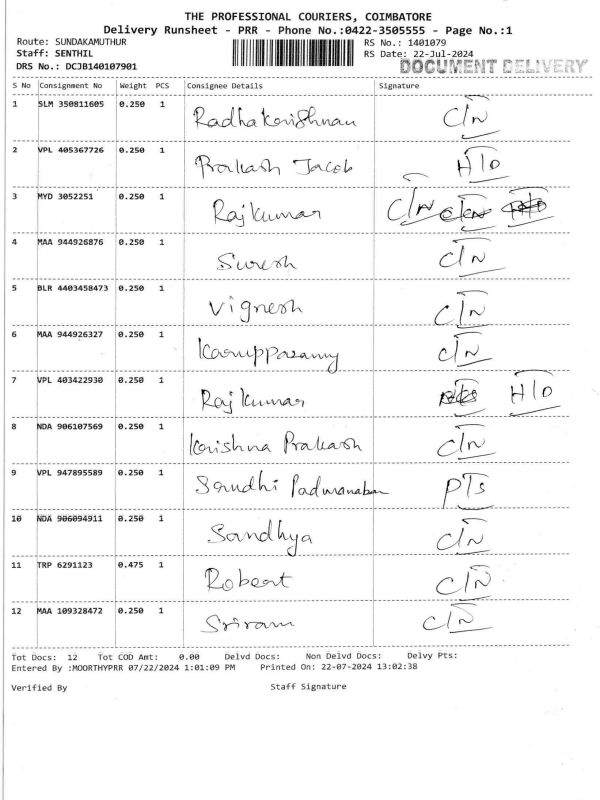 THE PROFESSIONAL COURIERS, COIMBATORE
Delivery Runsheet - PRR - Phone No.:0422-3505555 - Page No.:1
Route: SUNDAKAMUTHUR RS No.: 1401079
Staff: SENTHIL RS Date: 22-Jul-2024
DRS No.: DCJB140107901 DOCUMENT DELIVERY
S No Consignment No Weight PCS Consignee Details Signature
1 SLM 350811605 0.250 1 Radhakrishnan C/N
2 VPL 405367726 0.250 1 Prakash Jacob H/D
3 MYD 3052251 0.250 1 Rajkumar C/N
4 MAA 944926876 0.250 1 Suresh C/N
5 BLR 4403458473 0.250 1 Vignesh C/N
6 MAA 944926327 0.250 1 Karuppasamy C/N
7 VPL 403422930 0.250 1 Rajkumar H/D
8 NDA 906107569 0.250 1 Krishna Prakash C/N
9 VPL 947895589 0.250 1 Padmanaban PTS
10 NDA 906094911 0.250 1 Sandhya C/N
11 TRP 6291123 0.475 1 Robert C/N
12 MAA 109328472 0.250 1 Sriram C/N
Tot Docs: 12 Tot COD Amt: 0.00 Delvd Docs: Non Delvd Docs: Delvy Pts:
Entered By :MOORTHYPRR 07/22/2024 1:01:09 PM Printed On: 22-07-2024 13:02:38
Verified By Staff Signature